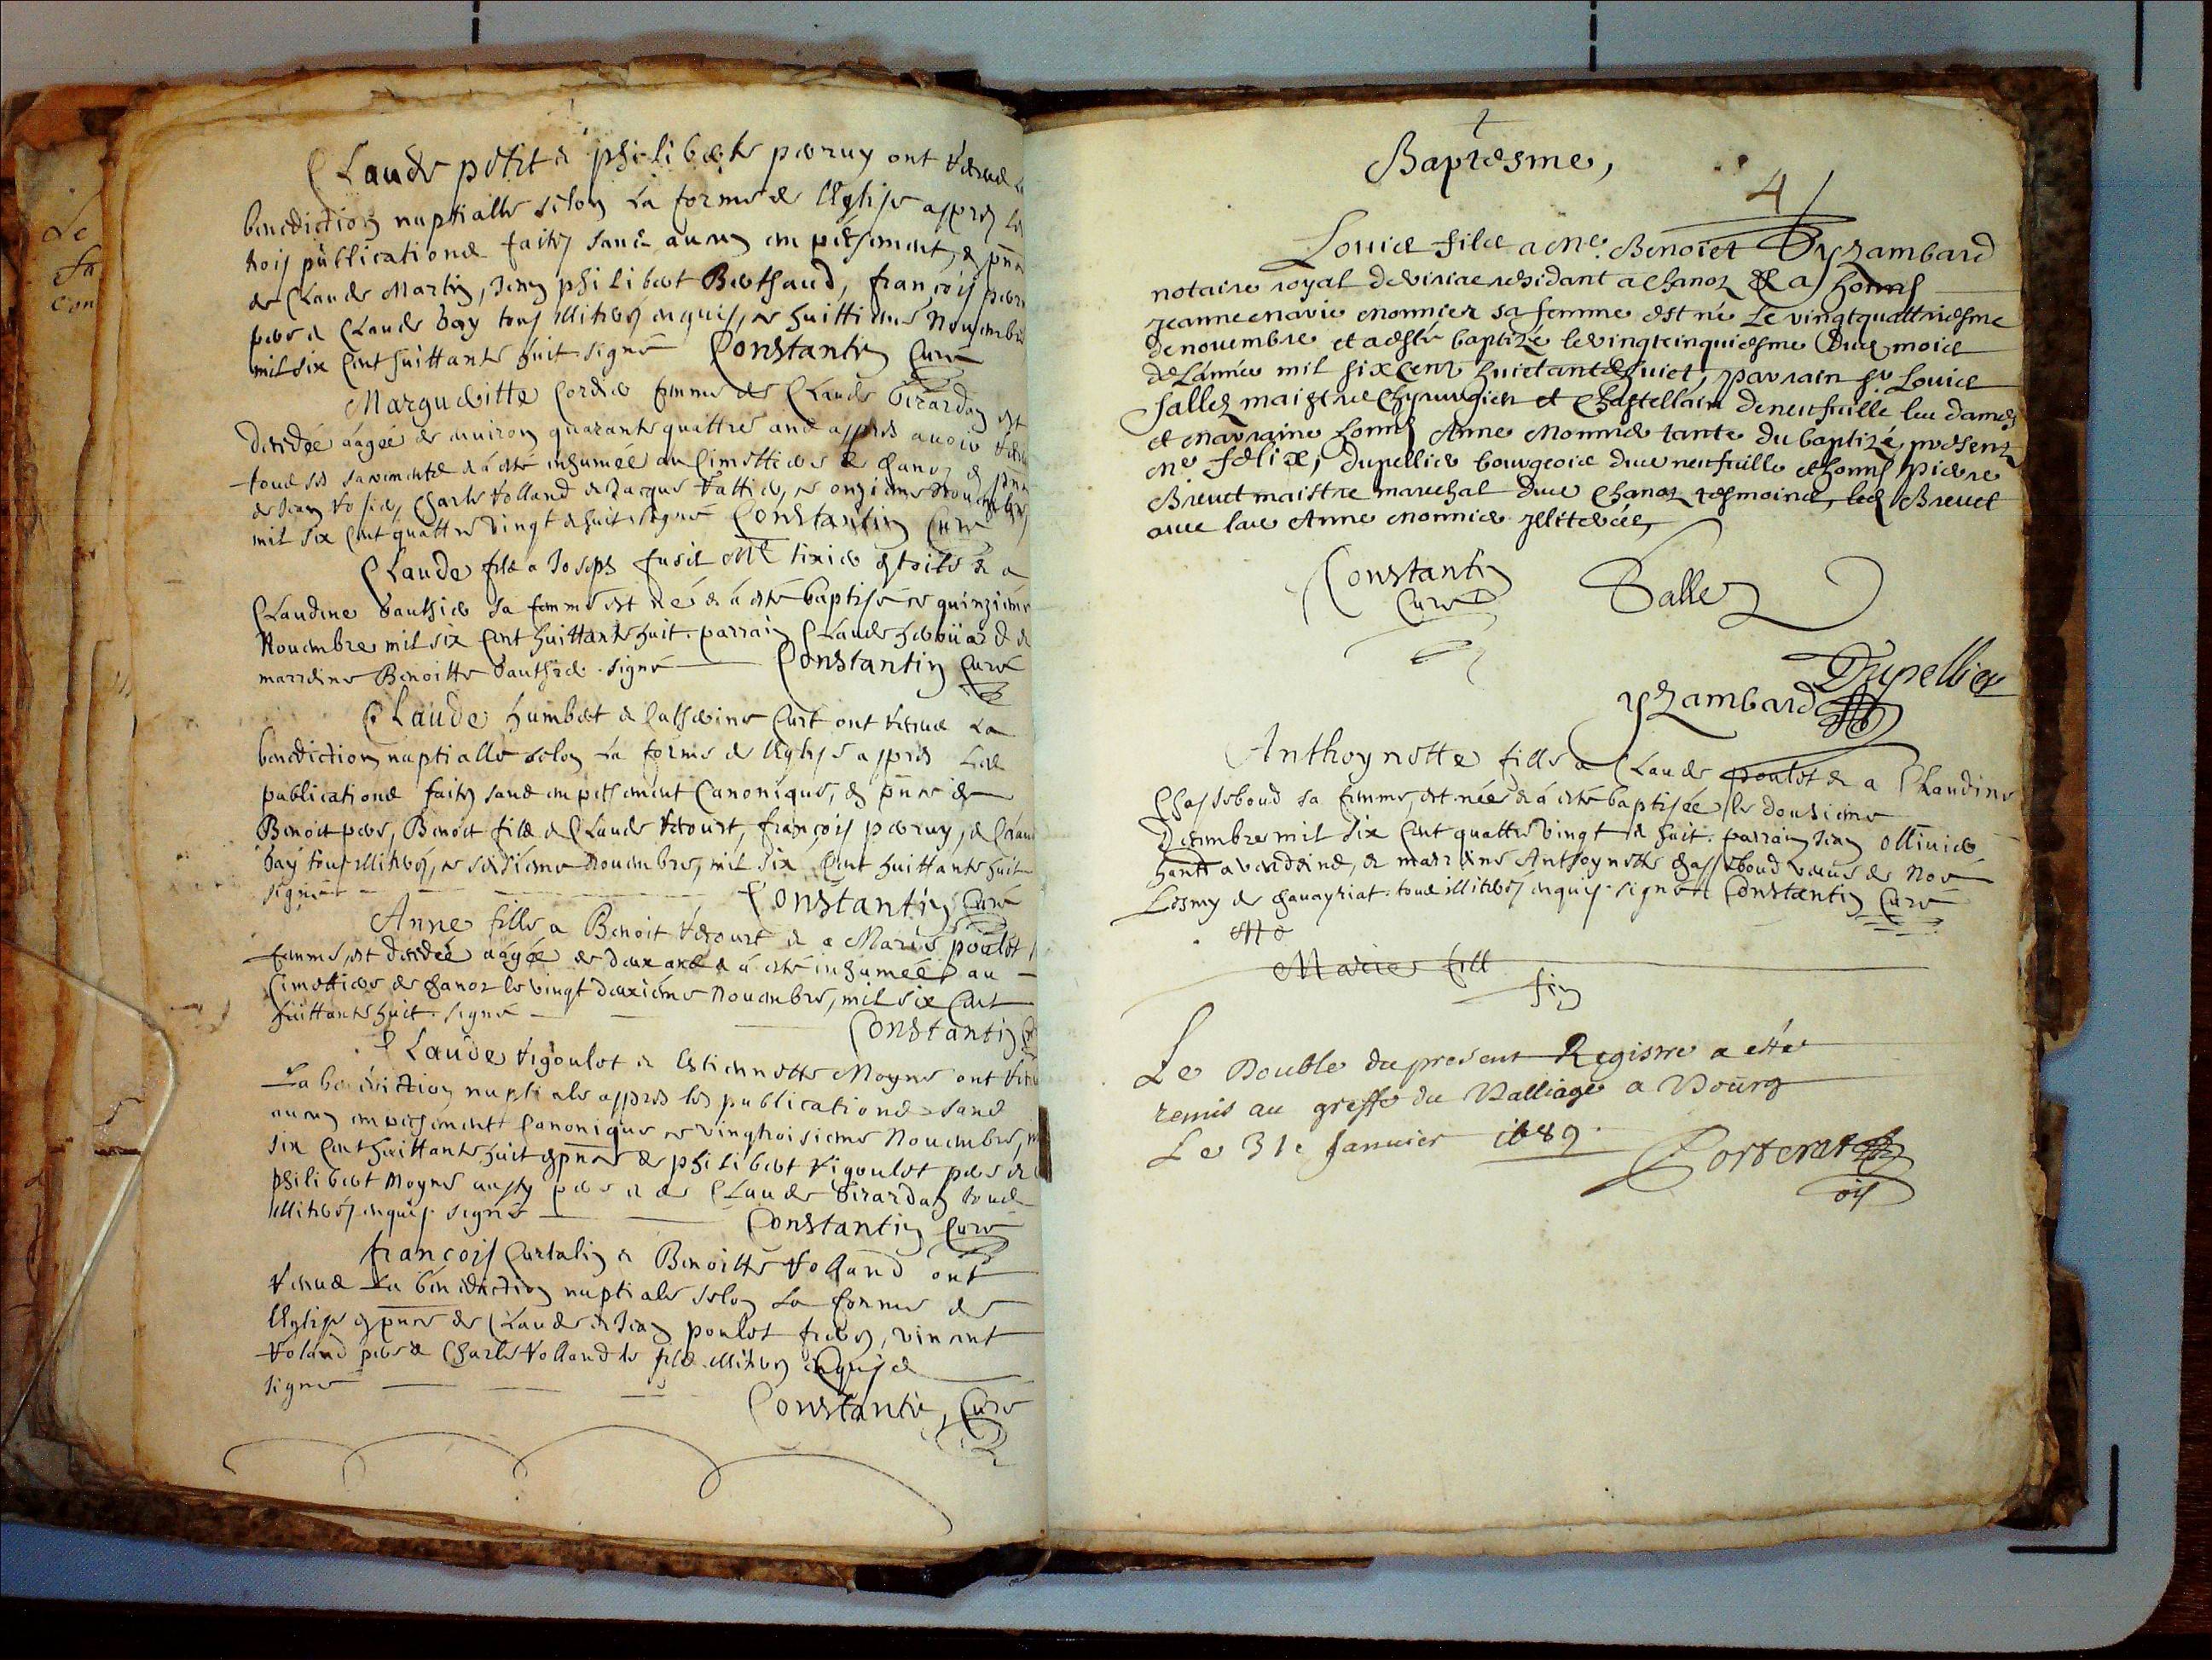 Claude petit & philiberte perruy ont receue la
benediction nuptialle selon la forme de lEglise appres les
trois publications faites sans aucun empeschement, & pnce
de Claude Martin, Jean philibert Berthaud, françois perr
pere & Claude bay tous illiterés enquis, ce huittieme Novembre
mil six Cent huittante huit signé Constantin Curé
Margueritte Cordier femme de Claude Girardon est
decedée aagée de environ quarante quattre ans appres avoir receu
tous ses sacrements & á esté inhumée au Cimettiere de chanoz en pnce
de Jean Charle Volland & Jacque Vattier, ce onzieme Novembre
mil six Cent quattre vingt & huit signé Constantin Curé
Claude fils a Joseph fusil Me tixier & a
Claudine Gauthier sa femme est né & á esté baptisé ce quinzieme
Novembre mil six Cent huittante huit. parrain Claude &
marreine Benoitte Gauthier. signé Constantin Curé
Claude humbert & Catherine Curt ont receue la
benediction nuptialle selon la forme de lEglise appres les
publications faites sans empeschement Canonique, en pnce de
Benoit pere, Benoit fils & Claude, françois perruy, & Claude
bay tous illiterés, ce seizieme Novembre, mil six Cent huittante huit
signé Constantin Curé
Anne fille a Benoit & a Marie poulet sa
femme, est decedée aagée de deux ans & á esté inhumée au
Cimettiere de chanoz le vingt deuxieme Novembre, mil six Cent
huittante huit. signé Constantin C
Claude rigoulet & Estiennette Moyne ont receu
La benediction nuptiale appres les publications sans
aucun empeschement Canonique ce vingtroisieme Novembre, m
six Cent huittante huit en pnce de philibert rigoulet pere & de
philibert Moyne aussy pere & de Claude Girardon tous
illiterés enquis. signé Constantin Curé
françois Curtalin & Benoitte Volland ont
receue La benediction nuptiale selon La forme de
lEglise en pnce de Claude & Jean poulet freres, vincent
Voland pere & Charle Volland le fils illiteres enquis
signé
Constantin, Curé
Baptesme,
4
Louis fils a Me. Benoict Yzambard
notaire royal de residant a Chanoz & a honnes
Jeanne Marie Monnier sa femme est né Le vingtquattriesme
de novembre et a esté baptizé le vingtcinquiesme Dud. mois
de Lannée mil six Cent huictante huict, parrain sr Louis
Sallez maistre Chyrurgien et Chastellain de neufville les dames
et marraine honnes Anne Monnier tante du baptizé presentz
Me felix, Dupellier bourgeois dud neufville & honnes pierre
Brevet maistre marechal dud Chanoz tesmoins, led Brevet
avec lad Anne Monnier illiterés,
Constantin
Curé
Sallez
Dupellier
yzambard
Anthoynette fille a Claude poulet & a Claudine
Chasseboud sa femme, est née & á esté baptisée le douzieme
Decembre mil six Cent quattre vingt & huit. parrain Jean Ollivier
hant a verdeine, & marreine Anthoynette chasseboud veuve de Noe
Losmy de chavayriat. tous illiterés enquis. signé Constantin Curé
Me
Marie fill
fin
Le Double du present Registre a esté
remis au greffe du Balliage a Bourg
Le 31e Janvier 1689.